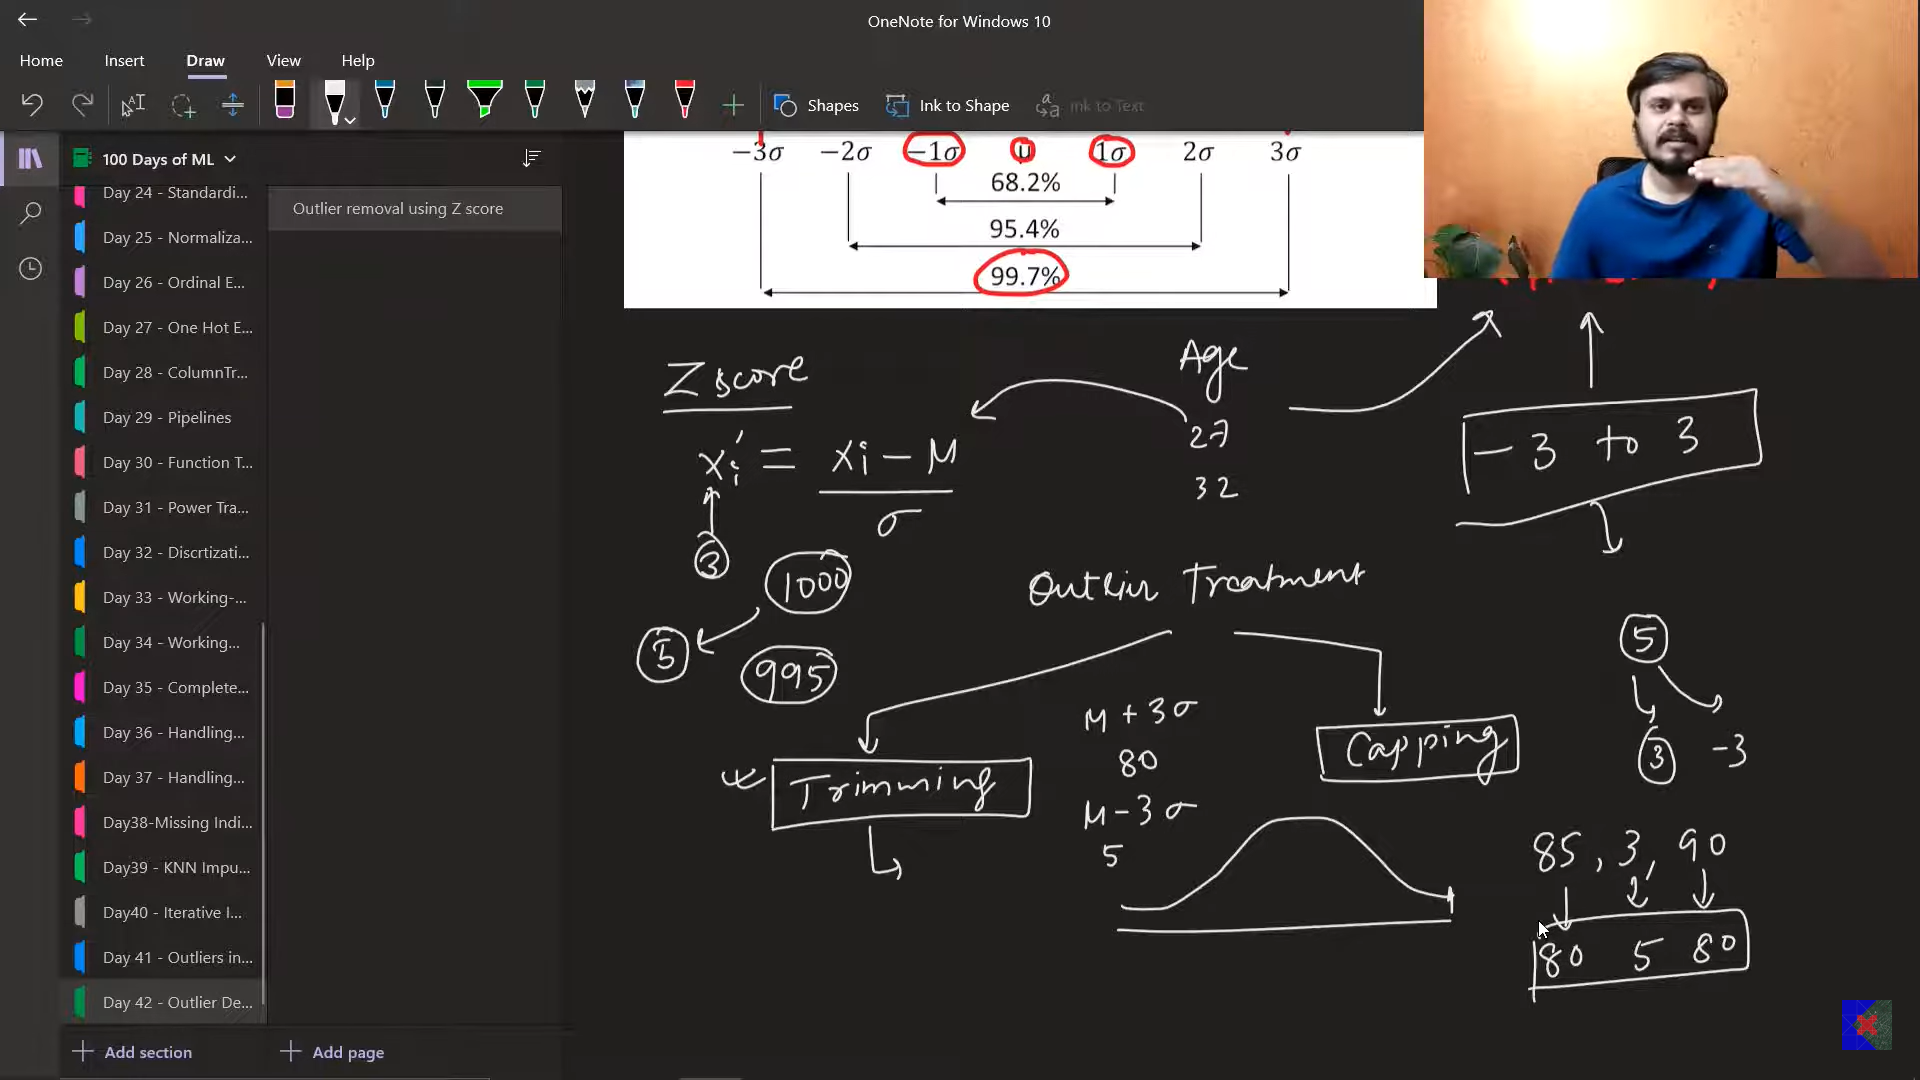 OneNote for Windows 10
Home Insert Draw View Help
Shapes Ink to Shape Ink to Text
100 Days of ML
Day 24 - Standardi...
Day 25 - Normaliza...
Day 26 - Ordinal E...
Day 27 - One Hot E...
Day 28 - ColumnTr...
Day 29 - Pipelines
Day 30 - Function T...
Day 31 - Power Tra...
Day 32 - Discrtizati...
Day 33 - Working-...
Day 34 - Working...
Day 35 - Complete...
Day 36 - Handling...
Day 37 - Handling...
Day38-Missing Indi...
Day39 - KNN Impu...
Day40 - Iterative I...
Day 41 - Outliers in...
Day 42 - Outlier De...
Add section
Outlier removal using Z score
Add page
−3σ −2σ −1σ μ 1σ 2σ 3σ
68.2%
95.4%
99.7%
Z score
xi' = xi − μ
σ
3
1000
5
995
Age
27
32
− 3 to 3
Outlier Treatment
Trimming
μ + 3σ
80
μ − 3σ
5
Capping
5
3 -3
85, 3, 90
80 5 80